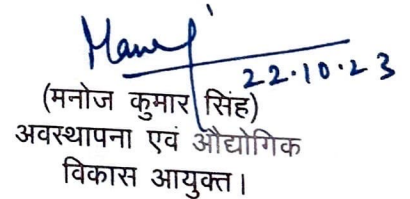 Manoj
22.10.23
(मनोज कुमार सिंह)
अवस्थापना एवं औद्योगिक
विकास आयुक्त।